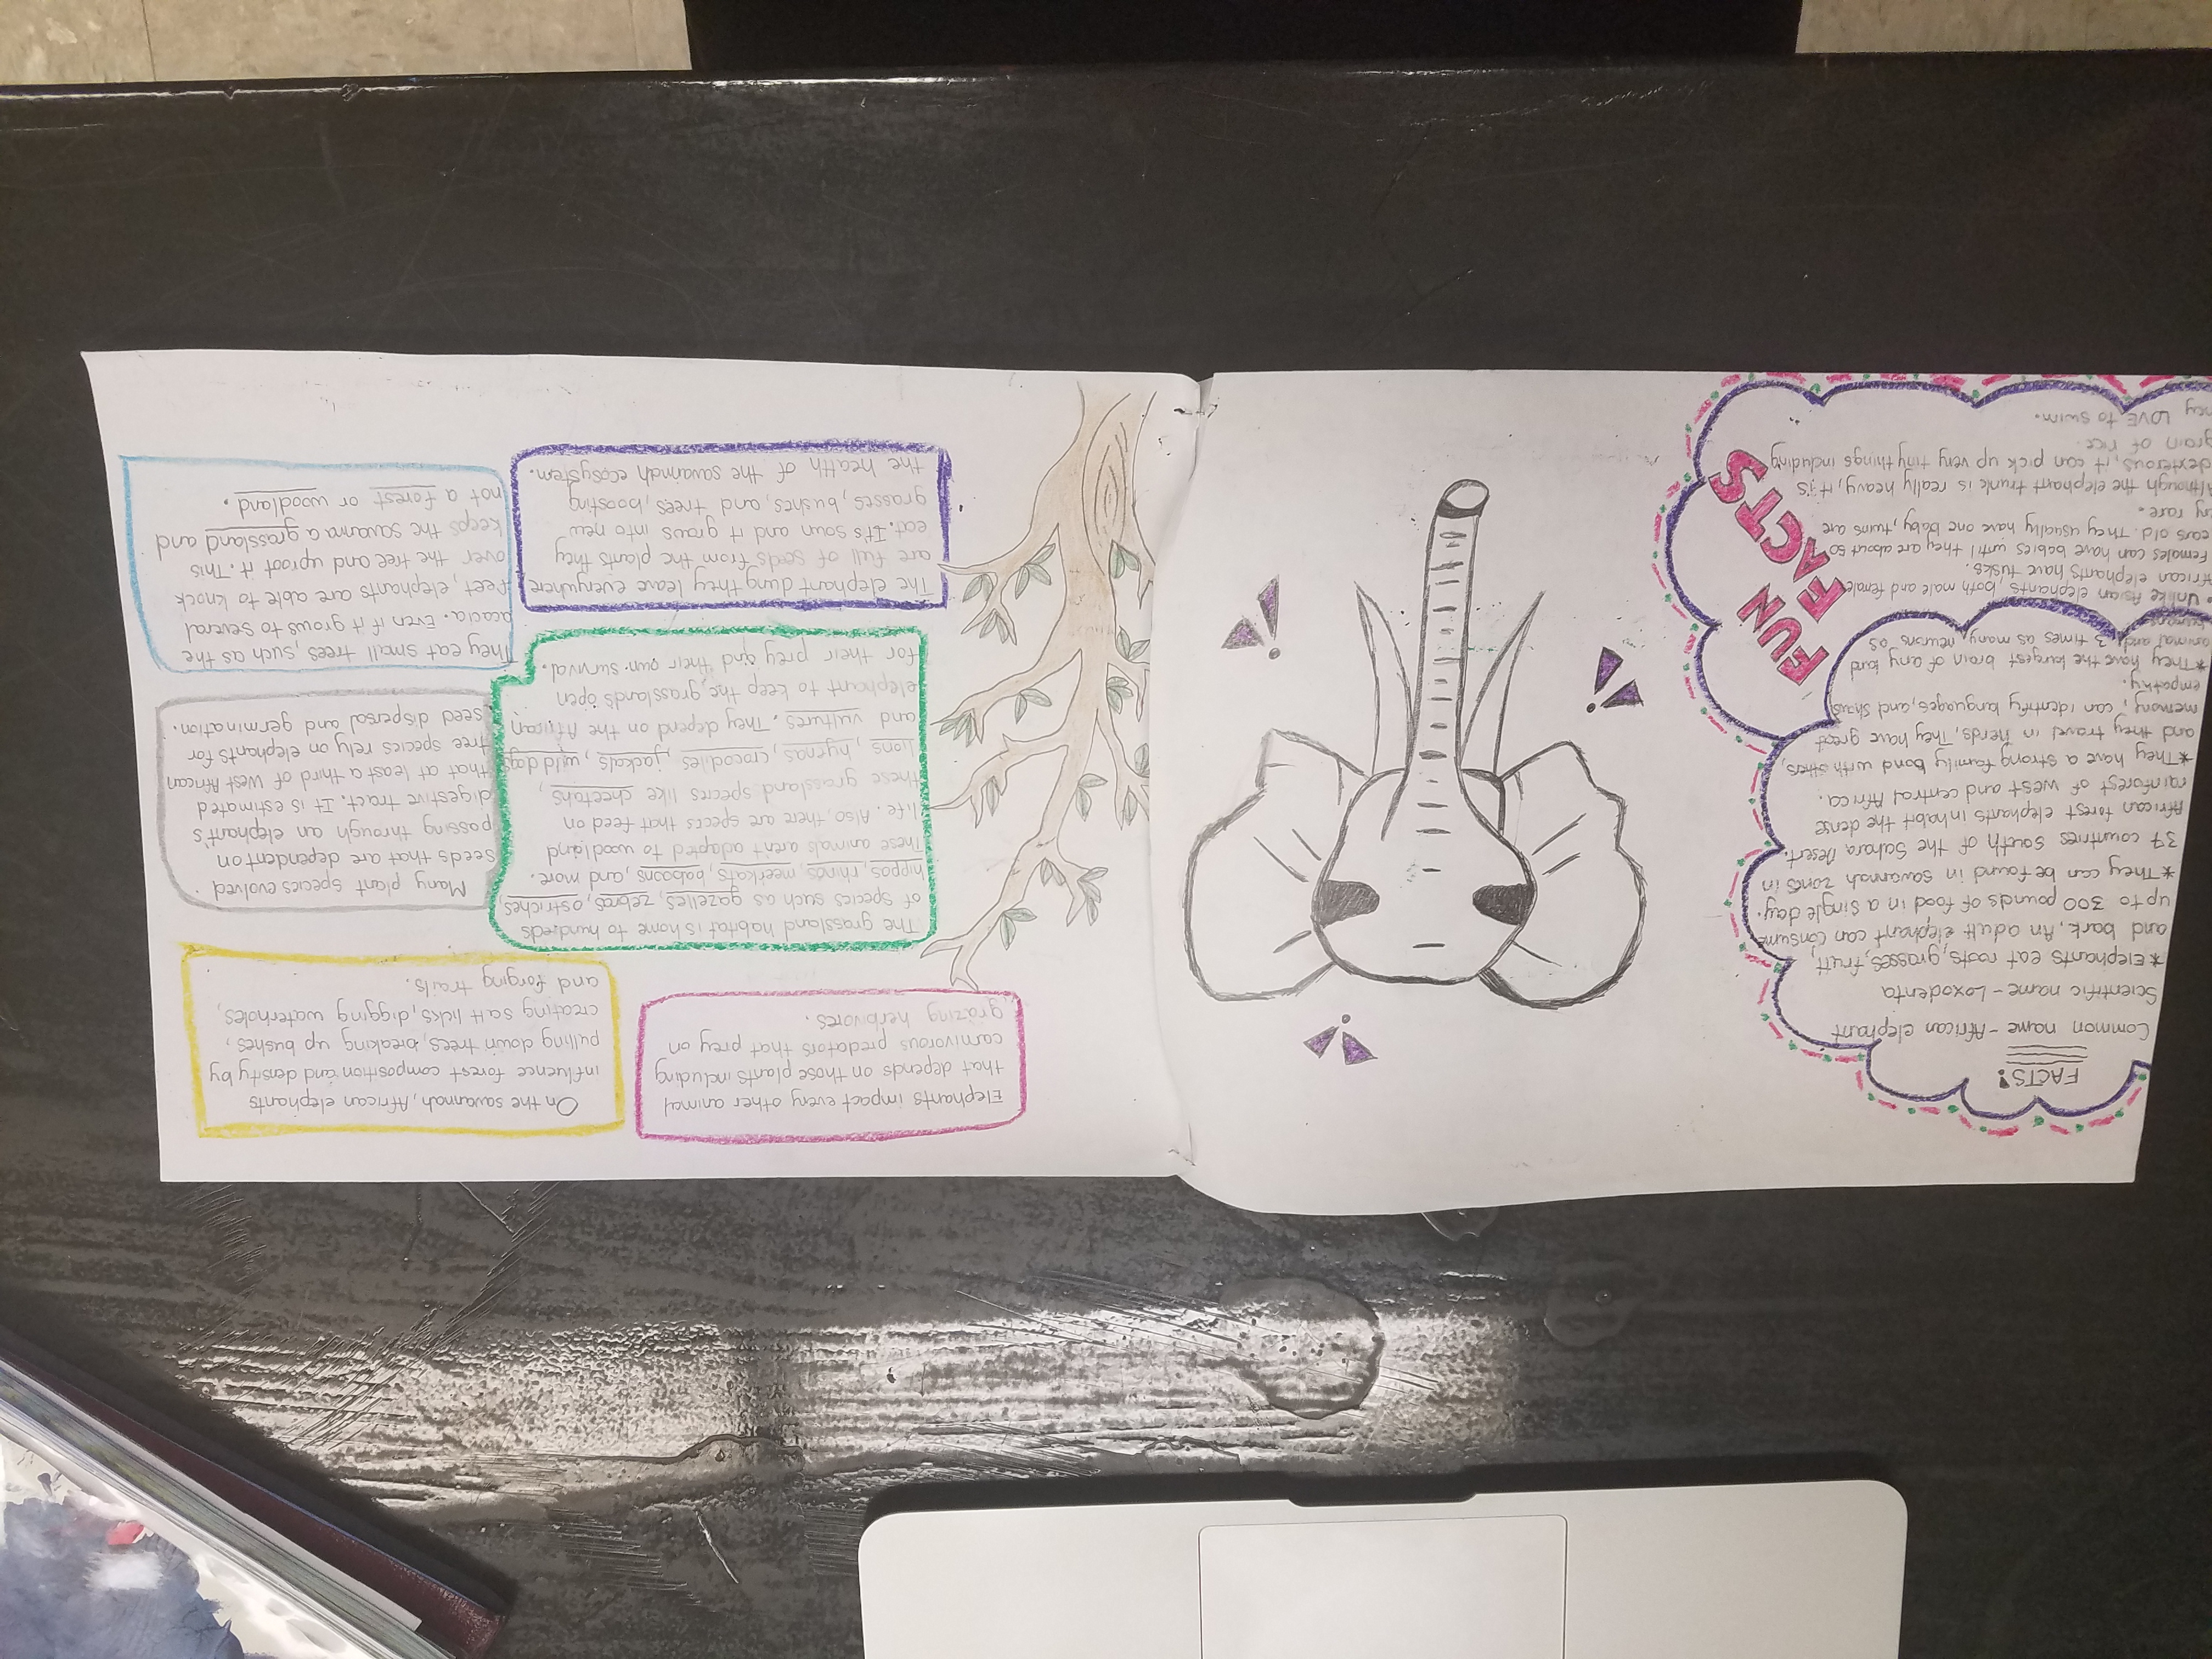 FACTS!
Common name - African elephant
Scientific name - Loxodenta
*Elephants eat roots, grasses, fruit,
and bark. An adult elephant can consume
up to 300 pounds of food in a single day.
*They can be found in savannah zones in
37 countries South of the Sahara Desert.
African forest elephants inhabit the dense
rainforest of west and central Africa.
*They have a strong family bond with others,
and they travel in herds. They have great
memory, can identify languages, and shows
empathy.
*They have the largest brain of any land
animal and 3 times as many neurons as
humans.
FUN
FACTS
• Unlike Asian elephants, both male and female
African elephants have tusks.
Females can have babies until they are about 50
ears old. They usually have one baby, twins are
ry rare.
Although the elephant trunk is really heavy, it's
dexterous, it can pick up very tiny things including
grain of rice.
hey LOVE to swim.
Elephants impact every other animal
that depends on those plants including
carnivorous predators that prey on
grazing herbivores.
On the savannah, African elephants
influence forest composition and density by
pulling down trees, breaking up bushes,
creating salt licks, digging waterholes,
and forging trails.
The grassland habitat is home to hundreds
of species such as gazelles, zebras, ostriches,
hippos, rhinos, meerkats, baboons, and more.
These animals aren't adapted to woodland
life. Also, there are species that feed on
these grassland species like cheetahs,
lions, hyenas, crocodiles, jackals, wild dogs
and vultures. They depend on the African
elephant to keep the grasslands open
for their prey and their own survival.
Many plant species evolved
seeds that are dependent on
passing through an elephant's
digestive tract. It is estimated
that at least a third of West African
tree species rely on elephants for
seed dispersal and germination.
The elephant dung they leave everywhere
are full of seeds from the plants they
eat. It's sown and it grows into new
grasses, bushes, and trees, boosting
the health of the savannah ecosystem.
They eat small trees, such as the
acacia. Even if it grows to several
feet, elephants are able to knock
over the tree and uproot it. This
keeps the savanna a grassland and
not a forest or woodland.